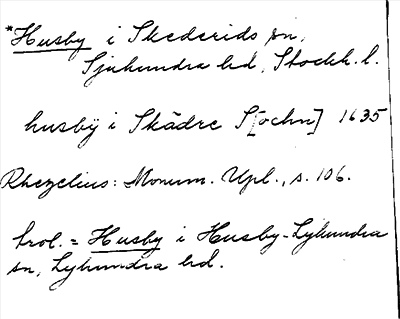 *Husby i Skederids sn,
Sjuhundra hd, Stockh. l.
husbÿ i Skädre S[ochn] 1635
Rhezelius: Monum. Upl., s. 106.
trol. = Husby i Husby-Lyhundra
sn, Lyhundra hd.